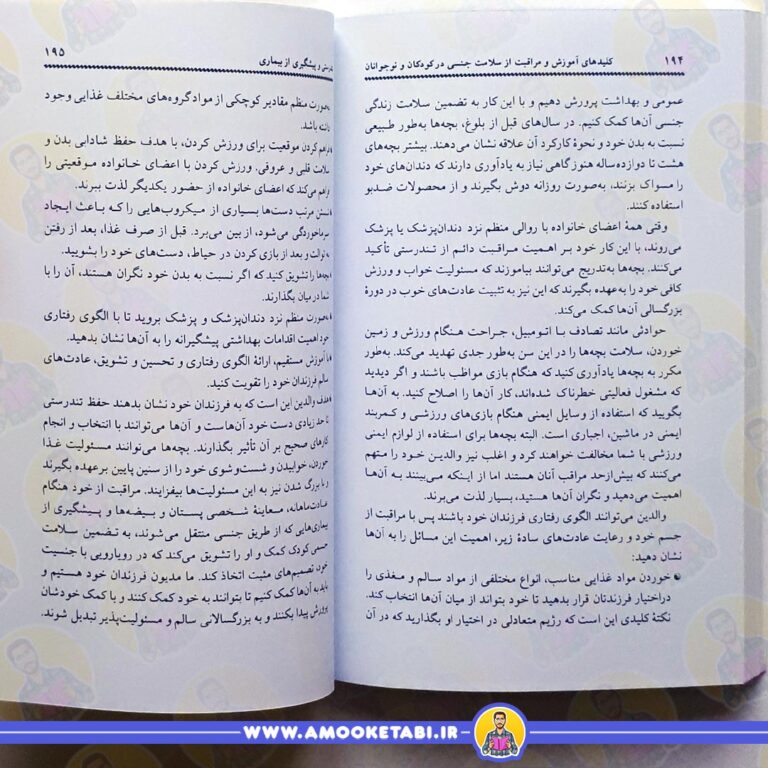 ۱۹۴ کلیدهای آموزش و مراقبت از سلامت جنسی در کودکان و نوجوانان
عمومی و بهداشت پرورش دهیم و با این کار به تضمین سلامت زندگی
جنسی آن‌ها کمک کنیم. در سال‌های قبل از بلوغ، بچه‌ها به‌طور طبیعی
نسبت به بدن خود و نحوهٔ کارکرد آن علاقه نشان می‌دهند. بیشتر بچه‌های
هشت تا دوازده‌ساله هنوز گاهی نیاز به یادآوری دارند که دندان‌های خود
را مسواک بزنند، به‌صورت روزانه دوش بگیرند و از محصولات ضدبو
استفاده کنند.
وقتی همهٔ اعضای خانواده با روالی منظم نزد دندان‌پزشک یا پزشک
می‌روند، با این کار خود بر اهمیت مراقبت دائم از تندرستی تأکید
می‌کنند. بچه‌ها به‌تدریج می‌توانند بیاموزند که مسئولیت خواب و ورزش
کافی خود را به‌عهده بگیرند که این نیز به تثبیت عادت‌های خوب در دورهٔ
بزرگسالی آن‌ها کمک می‌کند.
حوادثی مانند تصادف با اتومبیل، جراحت هنگام ورزش و زمین
خوردن، سلامت بچه‌ها را در این سن به‌طور جدی تهدید می‌کند. به‌طور
مکرر به بچه‌ها یادآوری کنید که هنگام بازی مواظب باشند و اگر دیدید
که مشغول فعالیتی خطرناک شده‌اند، کار آن‌ها را اصلاح کنید. به آن‌ها
بگویید که استفاده از وسایل ایمنی هنگام بازی‌های ورزشی و کمربند
ایمنی در ماشین، اجباری است. البته بچه‌ها برای استفاده از لوازم ایمنی
ورزشی با شما مخالفت خواهند کرد و اغلب نیز والدین خود را متهم
می‌کنند که بیش‌ازحد مراقب آنان هستند اما از اینکه می‌بینند به آن‌ها
اهمیت می‌دهید و نگران آن‌ها هستید، بسیار لذت می‌برند.
والدین می‌توانند الگوی رفتاری فرزندان خود باشند پس با مراقبت از
جسم خود و رعایت عادت‌های سادهٔ زیر، اهمیت این مسائل را به آن‌ها
نشان دهید:
● خوردن مواد غذایی مناسب، انواع مختلفی از مواد سالم و مغذی را
دراختیار فرزندتان قرار بدهید تا خود بتواند از میان آن‌ها انتخاب کند.
نکتهٔ کلیدی این است که رژیم متعادلی در اختیار او بگذارید که در آن
و پیشگیری از بیماری ۱۹۵
به‌صورت منظم مقادیر کوچکی از مواد گروه‌های مختلف غذایی وجود
داشته باشد.
فراهم کردن موقعیت برای ورزش کردن، با هدف حفظ شادابی بدن و
سلامت قلبی و عروقی، ورزش کردن با اعضای خانواده موقعیتی را
فراهم می‌کند که اعضای خانواده از حضور یکدیگر لذت ببرند.
شستن مرتب دست‌ها بسیاری از میکروب‌هایی را که باعث ایجاد
سرماخوردگی می‌شود، از بین می‌برد. قبل از صرف غذا، بعد از رفتن
به توالت و بعد از بازی کردن در حیاط، دست‌های خود را بشویید.
بچه‌ها را تشویق کنید که اگر نسبت به بدن خود نگران هستند، آن را با
شما در میان بگذارند.
به‌صورت منظم نزد دندان‌پزشک و پزشک بروید تا با الگوی رفتاری
خود اهمیت اقدامات بهداشتی پیشگیرانه را به آن‌ها نشان بدهید.
با آموزش مستقیم، ارائهٔ الگوی رفتاری و تحسین و تشویق، عادت‌های
سالم فرزندان خود را تقویت کنید.
هدف والدین این است که به فرزندان خود نشان بدهند حفظ تندرستی
تا حد زیادی دست خود آن‌هاست و آن‌ها می‌توانند با انتخاب و انجام
کارهای صحیح بر آن تأثیر بگذارند. بچه‌ها می‌توانند مسئولیت غذا
خوردن، خوابیدن و شست‌وشوی خود را از سنین پایین برعهده بگیرند
و با بزرگ شدن نیز به این مسئولیت‌ها بیفزایند. مراقبت از خود هنگام
عادت ماهانه، معاینهٔ شخصی پستان و بیضه‌ها و پیشگیری از
بیماری‌هایی که از طریق جنسی منتقل می‌شوند، به تضمین سلامت
جسمی کودک کمک و او را تشویق می‌کند که در رویارویی با جنسیت
خود، تصمیم‌های مثبت اتخاذ کند. ما مدیون فرزندان خود هستیم و
باید به آن‌ها کمک کنیم تا بتوانند به خود کمک کنند و با کمک خودشان
پرورش پیدا بکنند و به بزرگسالانی سالم و مسئولیت‌پذیر تبدیل شوند.
WWW.AMOOKETABI.IR